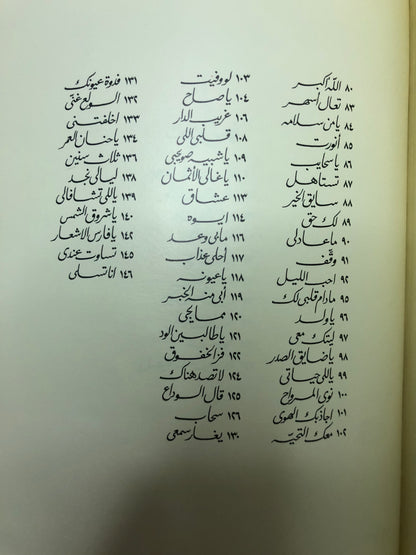 ٨٠ الله أكبر
٨٣ تعال أسهر
٨٤ يا من سلامه
٨٥ أنورت
٨٦ يا سحايب
٨٧ تستاهل
٨٨ سايق الخير
٨٩ لك حق
٩٠ ما عاد لي
٩١ وقف
٩٢ احب الليل
٩٥ مادام قلبي لك
٩٦ يا ولد
٩٧ ليتك معي
٩٨ يا ضايق الصدر
٩٩ ياللي حياتي
١٠٠ نوى المرواح
١٠١ اجاذبك الهوى
١٠٢ معك التحيّه
١٠٣ لو وفيت
١٠٤ يا صاح
١٠٦ غريب الدار
١٠٨ قلبي اللي
١٠٩ يا شبيه صويحبي
١١٠ يا غالي الأثمان
١١٣ عشاق
١١٤ ايوه
١١٦ ماني وعد
١١٧ أحلى عذاب
١١٨ يا عيونه
١١٩ أبي منه الخبر
١٢٠ مما يجي
١٢١ يا طالبين الود
١٢٢ فز الخفوق
١٢٤ لا تصد هناك
١٢٥ قال الوداع
١٢٦ سحاب
١٣٠ يغار سمعي
١٣١ فدوة عيونك
١٣٢ الولع غنّى
١٣٣ اخلفتني
١٣٤ يا حنان العمر
١٣٦ ثلاث سنين
١٣٨ ليالي نجد
١٣٩ ياللي تشافالي
١٤٠ يا شروق الشمس
١٤٢ يا فارس الاشعار
١٤٥ تساوت عندي
١٤٦ انا تسلى